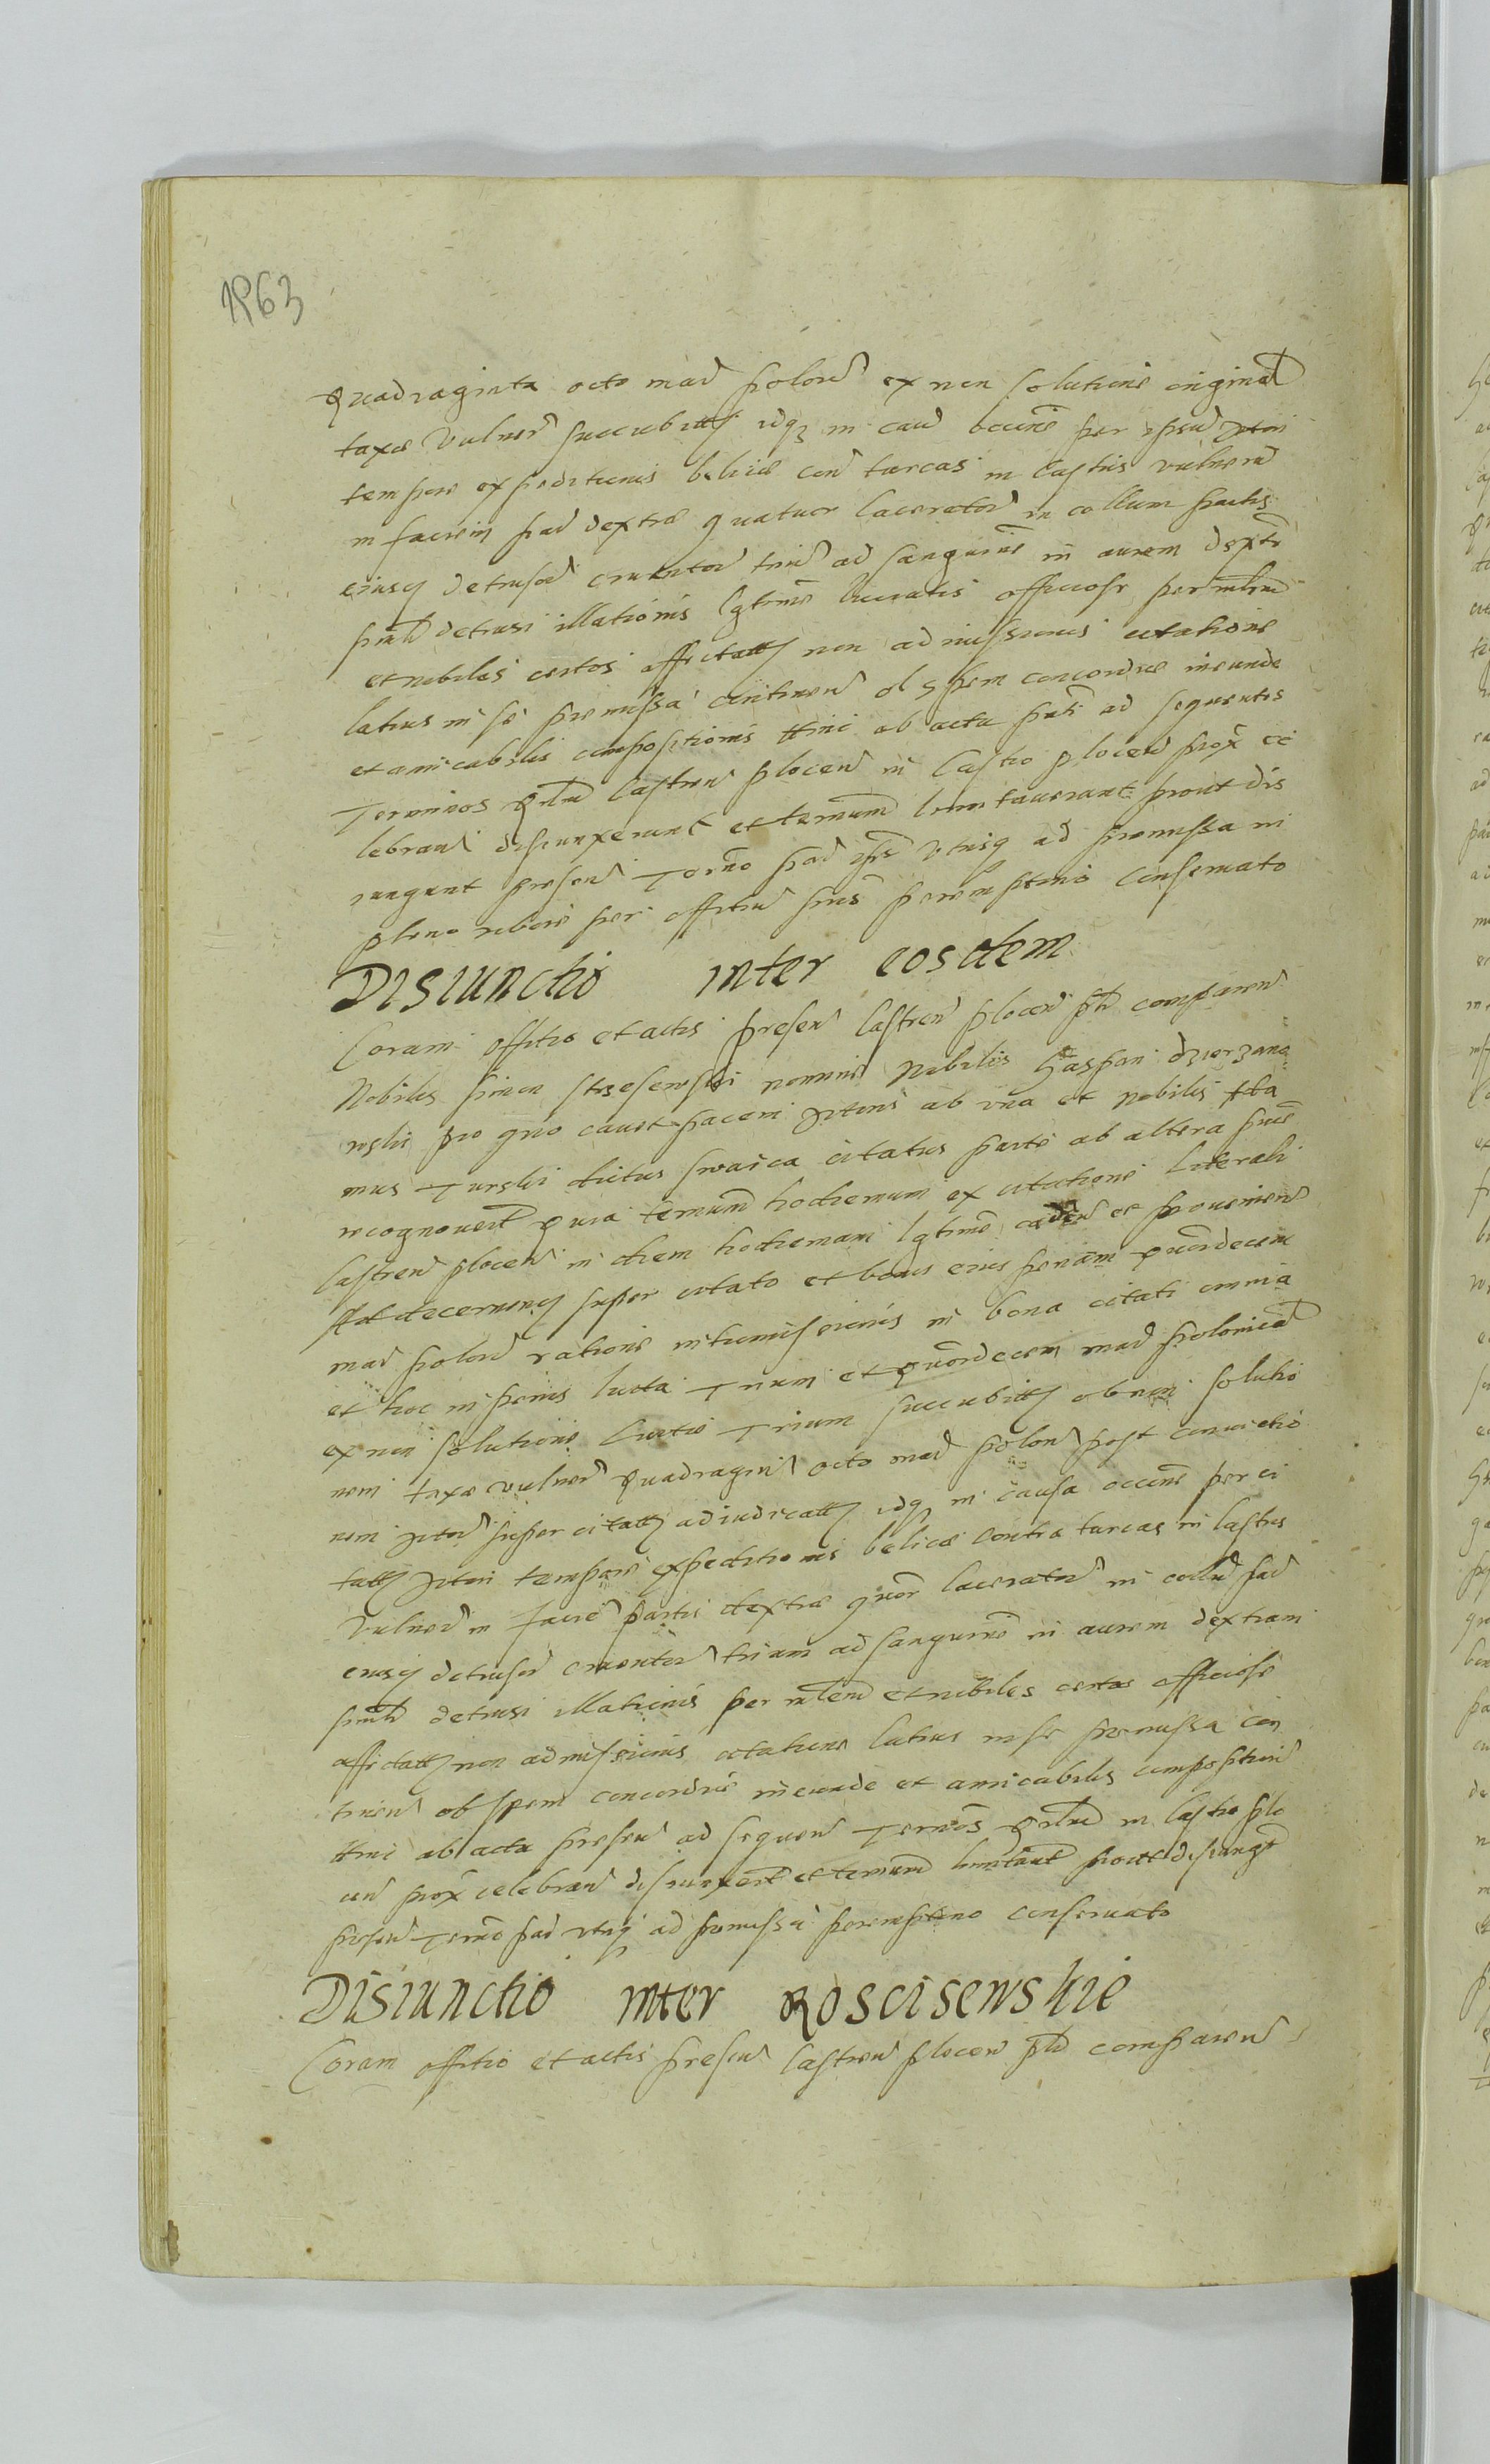 1863
Quadraginta octo mar polon ex non solutione original
taxæ vulner succubitt idq in caus occme per ipsu
tempore expeditionis belicæ con turcas in castris vulner
in faciem par dextræ quatuor lacerator in collum partis
eiusq detrusor cruentor triu ad sanguine in aurem dextr
detrusi illationis lgtime lucratis officiose per mlem
et nobiles certos affectatt non admissionis citatione
latius in se præmissa continen ob spem concordiæ ineunde
et amicabilis compositionis ttrini ab actu pnti ad sequentes
Terminos Castren plocen in Castro plocen prox ce
lebran disiunxerunt et terminum limitauerunt prout dis
iungunt presen Termo par vtrisq ad præmissa in
pleno robore per offitiu peremptorio conseruato
Disiunctio inter eosdem
Coram offitio et actis presen Castren plocen comparen
Nobiles Simon nomine Nobilis Gaspari dzierzano
wski pro quo cauet pacem ab vna et Nobilis
mus Turski dictus swaica citatus parte ab altera
recognouert quia terminum hodiernum ex citatione literali
Castren plocen in diem hodiernam lgtime caden et prouenien
decernenq super citato et bonis eius penam quordecem
mar polon ratione intromissionis in bona citati omnia
et hoc in penis lucta Trium et quordecem mar polonica
ex non solutione Luctæ Trium succubitt ob non solutio
nem taxæ vulner Quadragin octo mar polon post conuictio
nem super citatt adiudicatt idq in causa occme per ci
tatt tempore expeditionis belicæ contra turcas in castris
Vulner in facie partis dextræ quor lacerator in collu par
eiusq detrusor cruentor trium ad sanguine in aurem dextram
detrusi illationis per mlem et nobiles certos officiose
affectatt non admissionis citatione latius in se præmissa con
tinen ob spem concordiæ ineunde et amicabilis composition
ttrini ab actu presen ad sequen Termos in Castro plo
cen prox celebran disiunxert et terminum limitarut prout disiungt
presen Termo par vtrisq ad præmissa peremptorio conseruato
Disiunctio inter Roscisewskie
Coram offitio et actis presen Castren plocen comparen